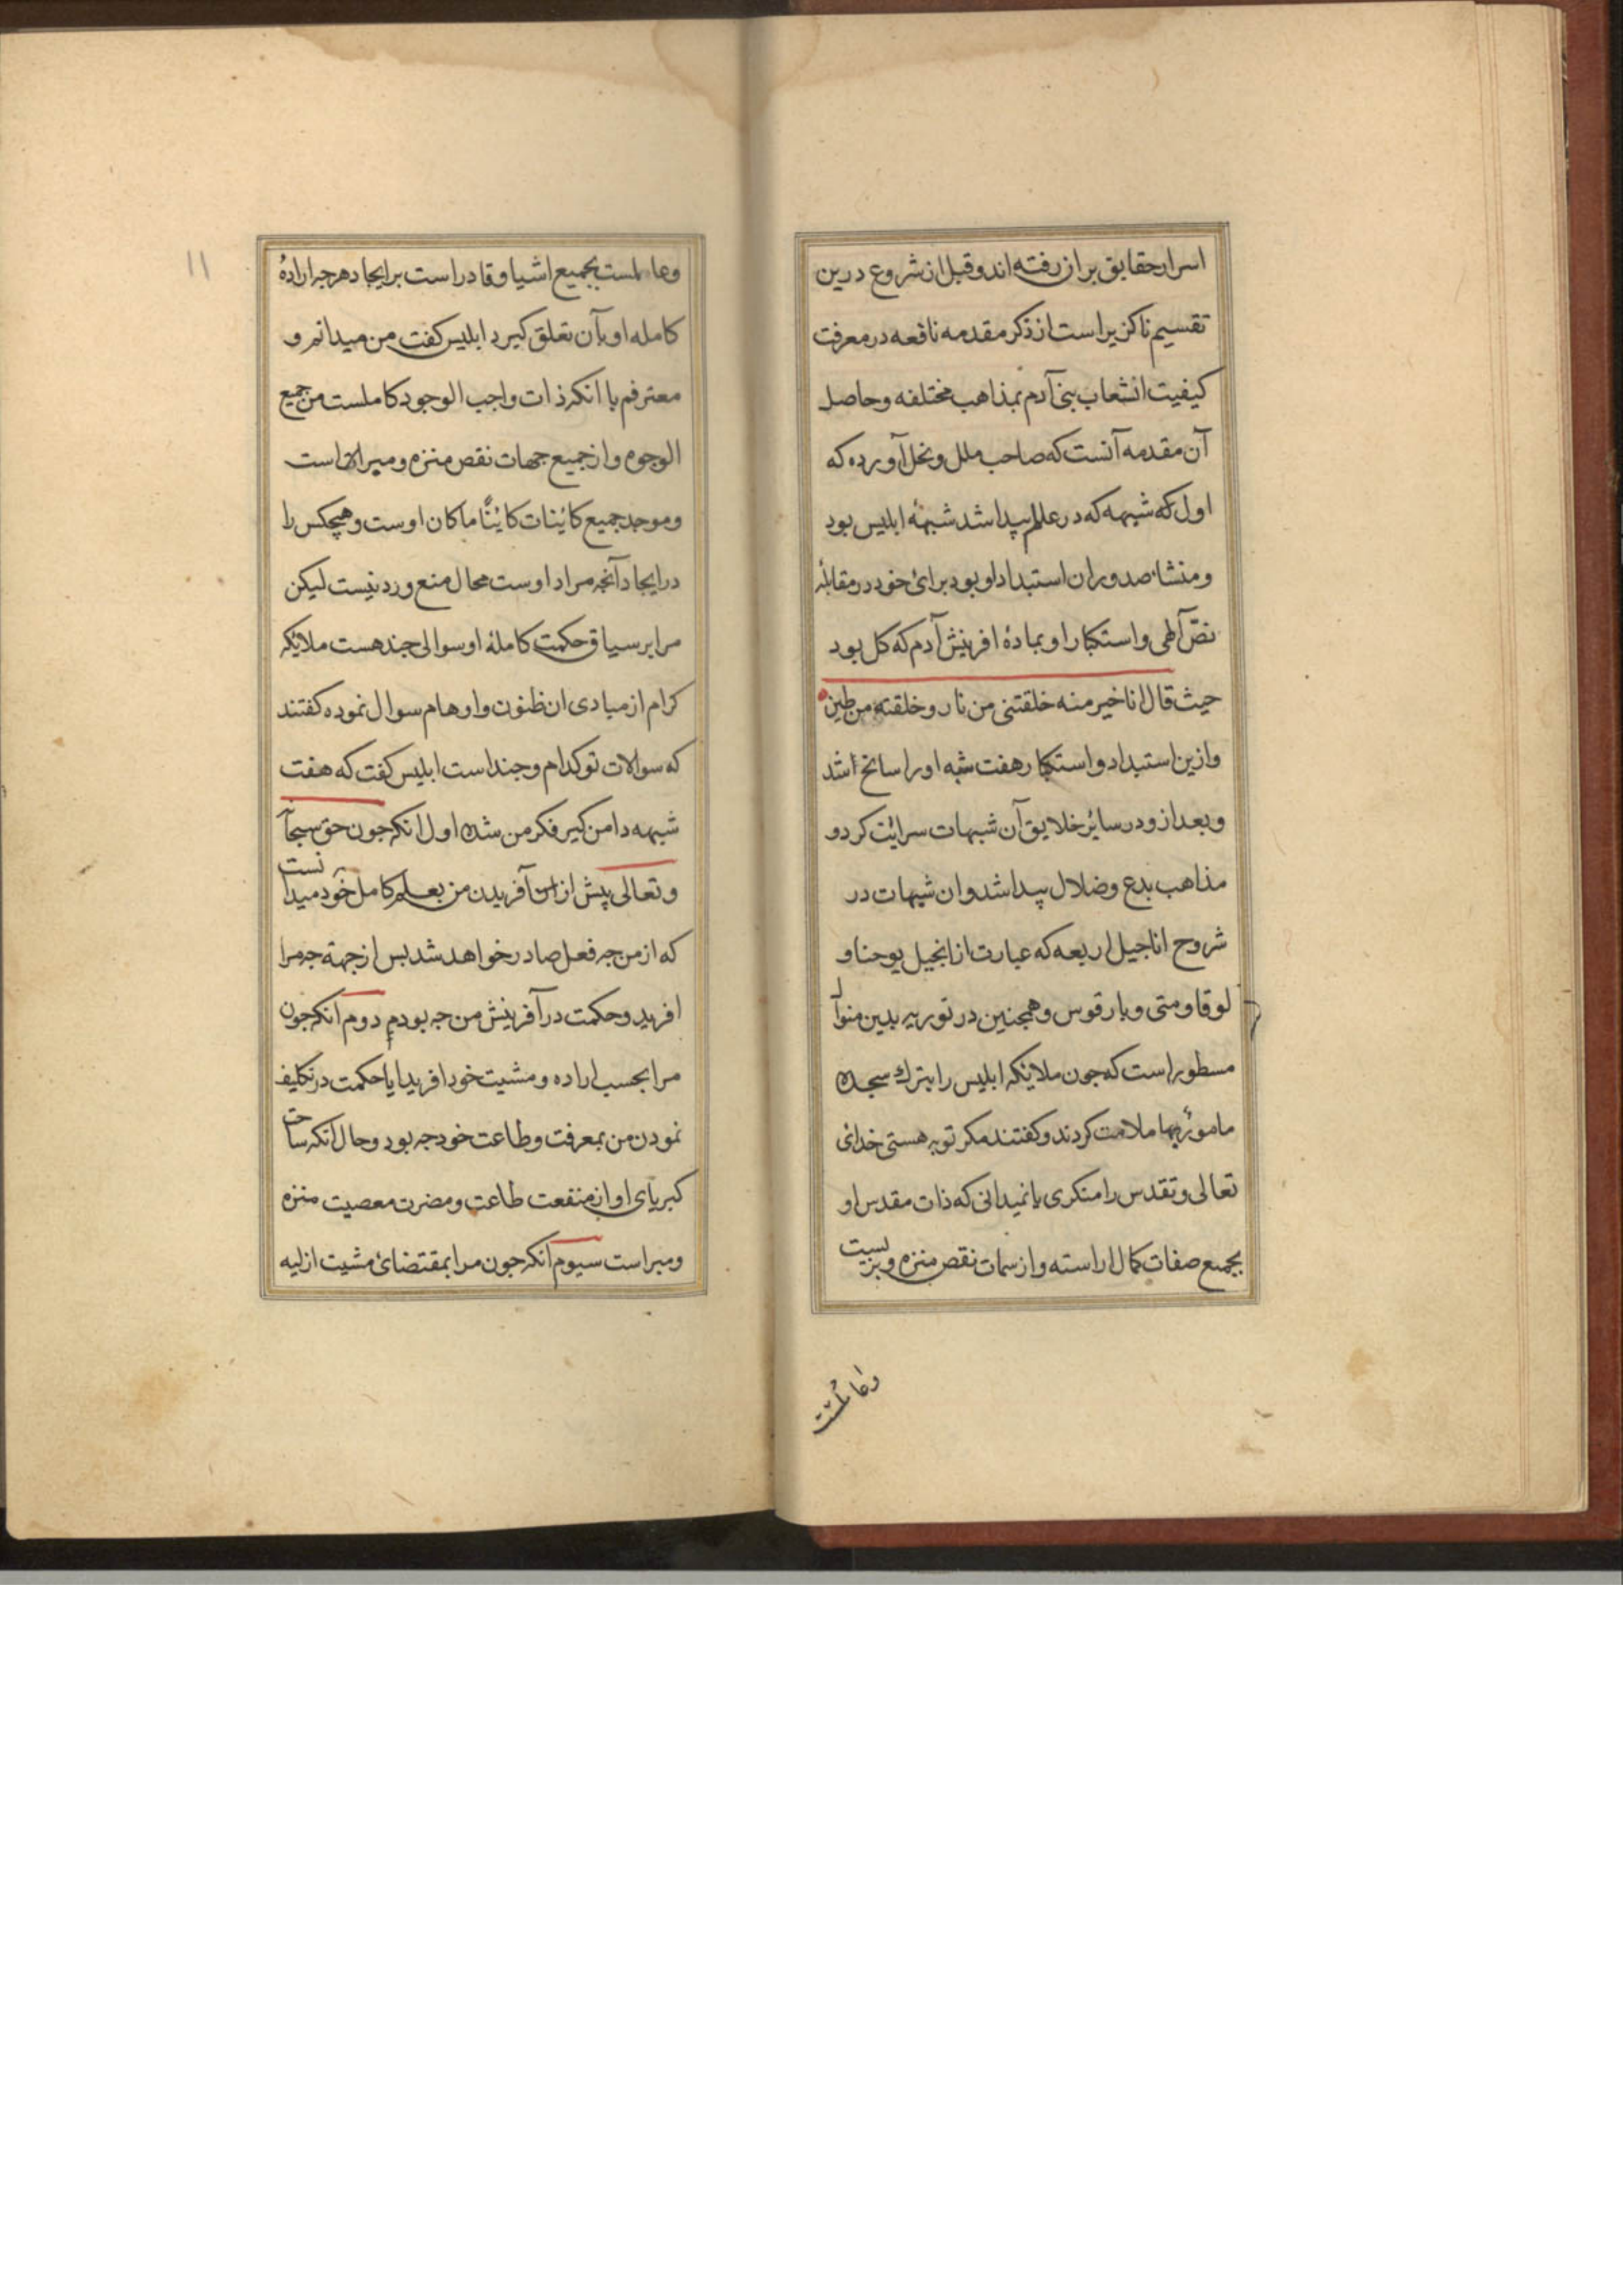 اسرار حقایق بران رفته اند و قبل از شروع درین
تقسیم ناکزیر است از ذکر مقدمه نافعه در معرفت
کیفیت انشعاب بنی آدم بمذاهب مختلفه و حاصل
آن مقدمه آنست که صاحب ملل و نحل آورده که
اول که شبهه که در عالم پیدا شد شبهۀ ابلیس بود
و منشاء صدور ان استبداد او بود برائ خود در مقابلۀ
نصّ آلهی و استکبار او بمادۀ افرینش آدم که کل بود
حیث قال انا خیر منه خلقتنی من نار و خلقته من طین
و ازین استبداد و استکبار هفت شبه او را سانح اشد
و بعد ازو در سائر خلایق آن شبهات سرایت کرد و
مذاهب بدع و ضلال پیدا شد و ان شبهات در
شروح اناجیل اربعه که عبارت از انجیل یوحنا و
لوقا و متی و بارقوس و همجنین در توریه بدین منوال
مسطور است که جون ملایکه ابلیس را بترك سجده
مامور بها ملامت کردند و کفتند مکر تو به هستی خدای
تعالی و تقدس را منکری یا نمیدانی که ذات مقدس او
بجمیع صفات کمال اراسته و از سمات نقص منزه و
و عالمست
و عالمست بجمیع اشیا و قادر است بر ایجاد هر جه ارادۀ
کامله او بآن تعلق کیرد ابلیس کفت من میدانم و
معترفم با انکه ذات واجب الوجود کاملست من جمیع
الوجوه و از جمیع جهات نقص منزه و مبرا است
و موجد جمیع کاینات کاینًا ما کان اوست و هیچکس را
در ایجاد آنچه مراد اوست مجال منع و رد نیست لیکن
مرا بر سیاق حکمت کاملۀ او سوالی جند هست ملایکه
کرام از مبادی ان ظنون و اوهام سوال نموده کفتند
که سوالات تو کدام و جند است ابلیس کفت که هفت
شبهه دامن کیر فکر من شده اول انکه جون حق سبحا
و تعالی پیش از آفریدن من بعلم کامل خود میدا نست
که از من جه فعل صادر خواهد شد بس از جهة جه مرا
افرید و حکمت در آفرینش من جه بود دوم انکه جون
مرا بحسب اراده و مشیت خود افرید ایا حکمت در تکلیف
نمودن من بمعرفت و طاعت خود جه بود و حال انکه ساحت
کبریای او از منفعت طاعت و مضرت معصیت منزه
و مبراست سیوم انکه جون مرا بمقتضائ مشیت ازلیه
۱۱